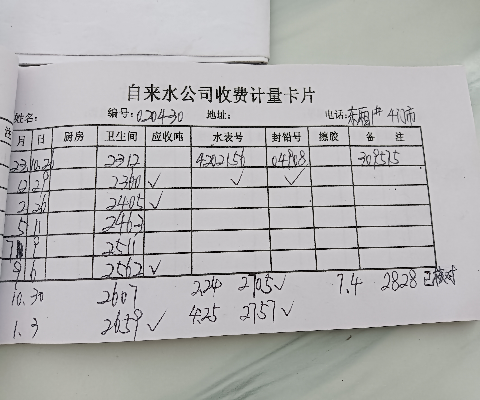 自来水公司收费计量卡片
姓名: 编号: 0204-30 地址: 电话: 4门市
月 日 厨房 卫生间 应收吨 水表号 封铅号 擦胶 备 注
23.10.20 2312 4202156 04908 309575
12 29 2360 ✓ ✓ ✓
2 26 2405 ✓
5 11 2463
7 9 2511
9 6 2562 ✓
10.30 2607 2.24 2705 ✓ 7.4 2828 已核对
1.3 2659 ✓ 4.25 2757 ✓